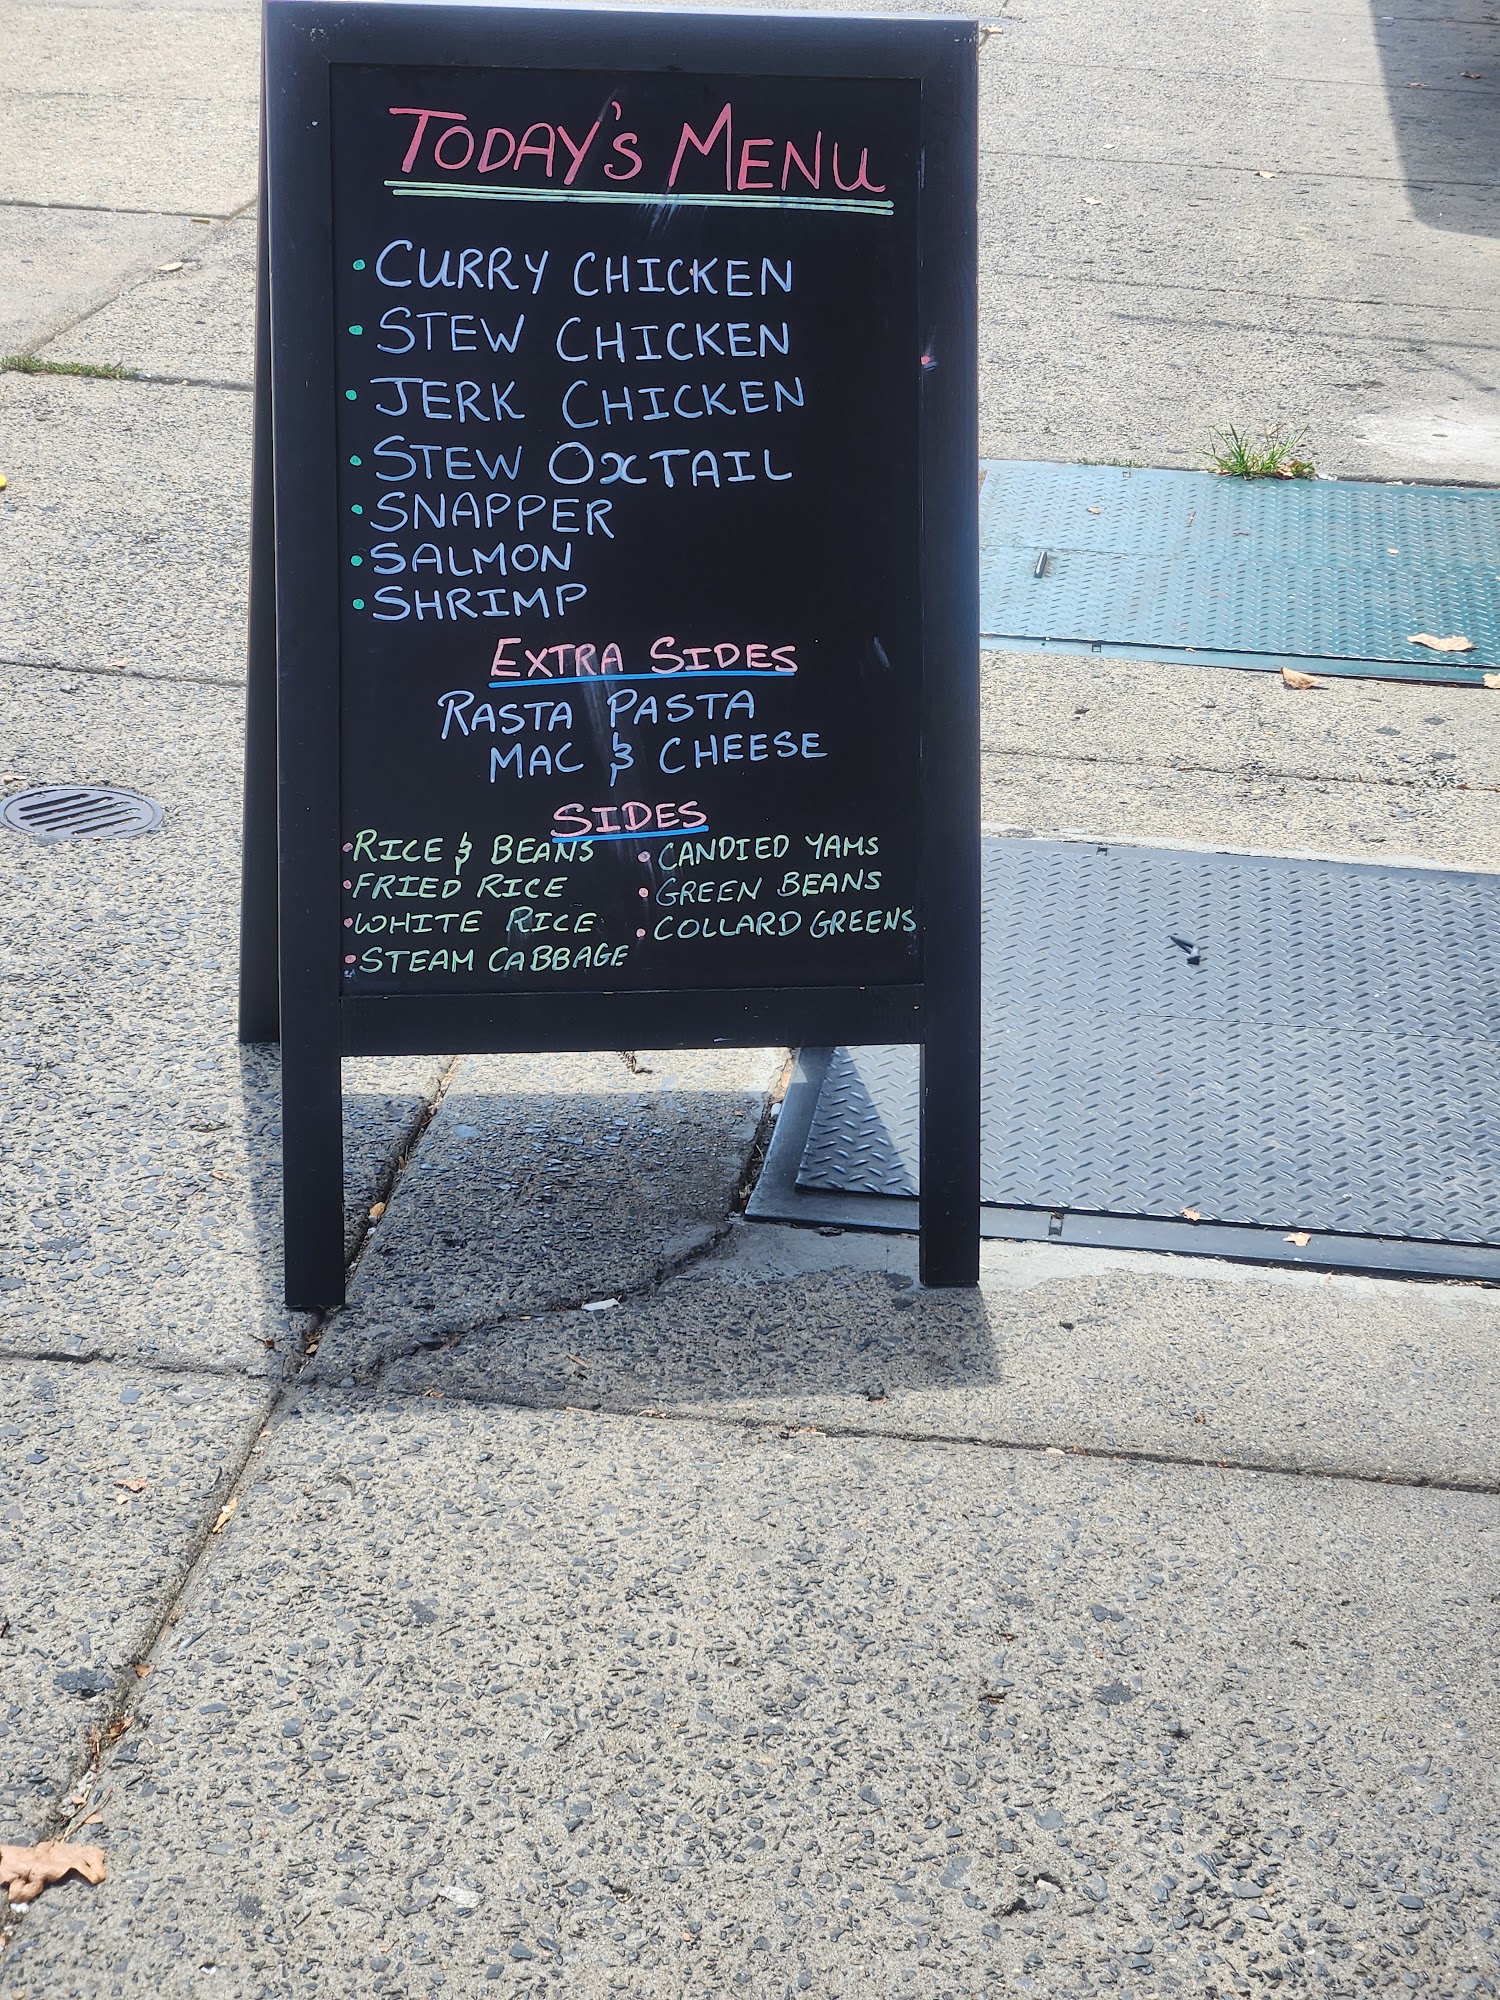 TODAY'S MENU
• CURRY CHICKEN
• STEW CHICKEN
• JERK CHICKEN
• STEW OXTAIL
• SNAPPER
• SALMON
• SHRIMP
EXTRA SIDES
RASTA PASTA
MAC & CHEESE
SIDES
• RICE & BEANS
• FRIED RICE
• WHITE RICE
• STEAM CABBAGE
• CANDIED YAMS
• GREEN BEANS
• COLLARD GREENS